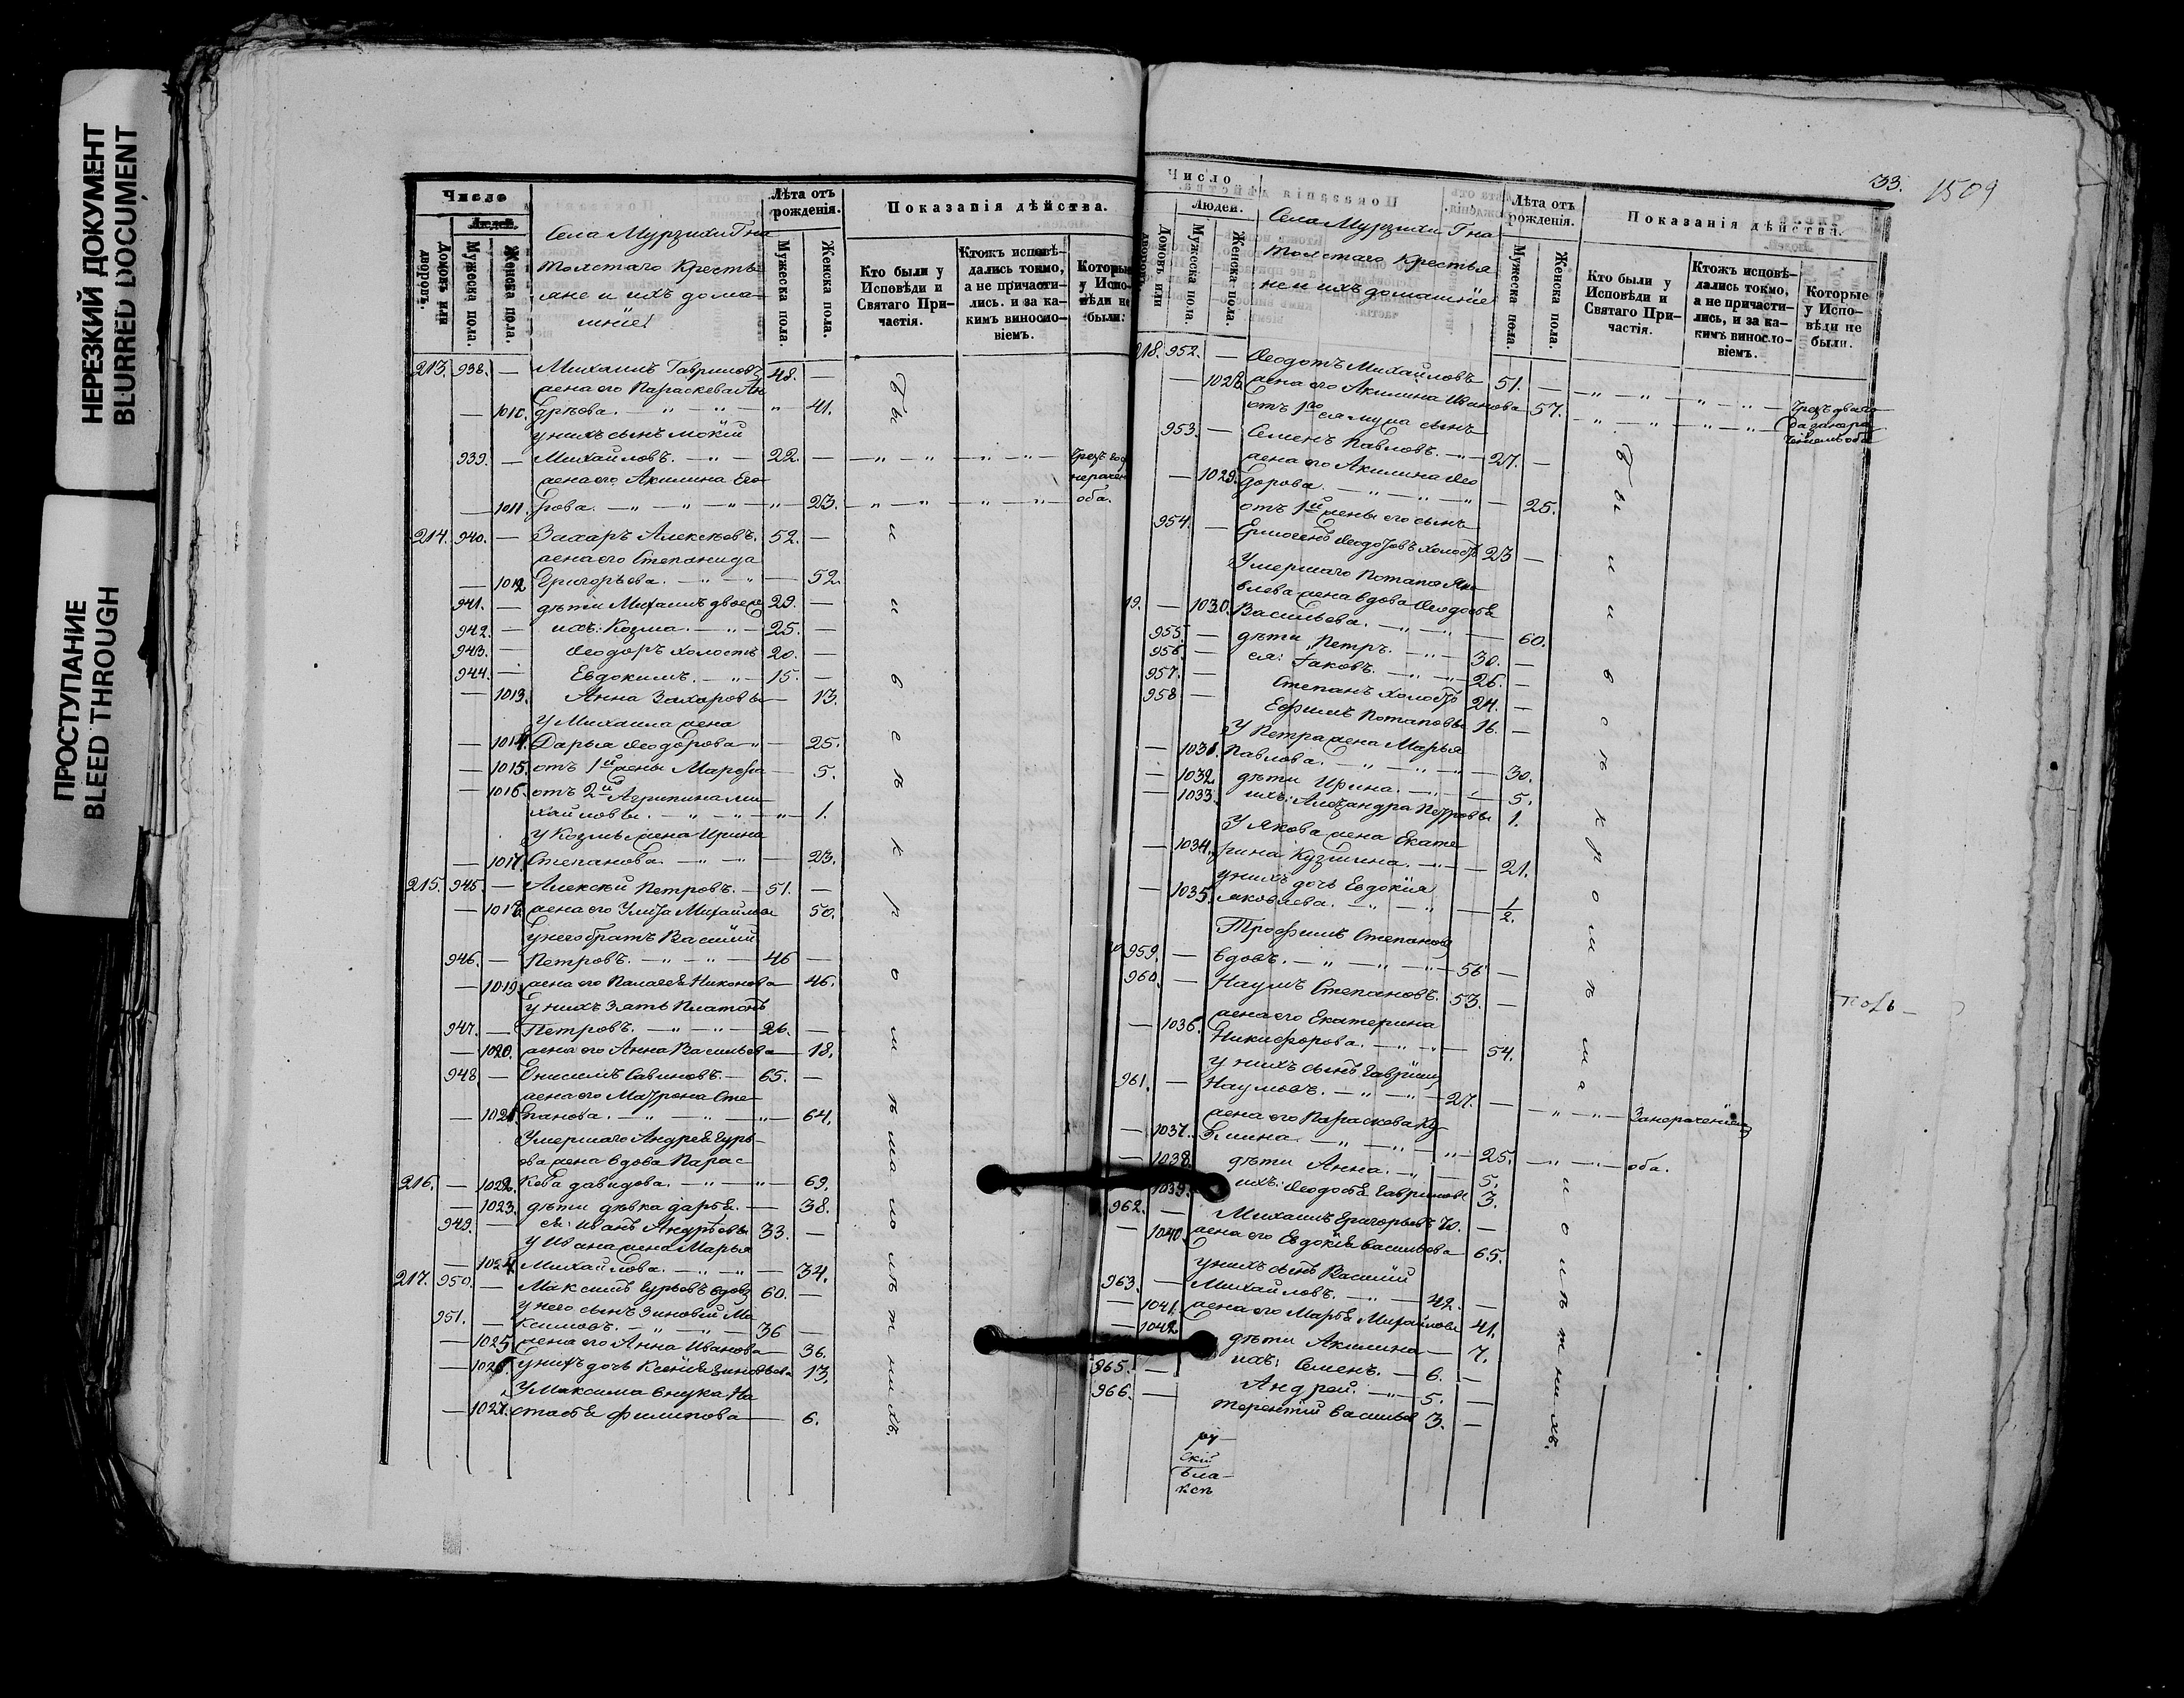 НЕРЕЗКИЙ ДОКУМЕНТ
BLURRED DOCUMENT
ПРОСТУПАНИЕ
BLEED THROUGH
Число
Людей.
Домовъ или дворовъ.
Мужеска пола.
Женска пола.
Села Мурзихи Гна
Толстаго Крестья
яне и ихъ дома-
шніе:
Лѣта отъ рожденія.
Мужеска пола.
Женска пола.
Показанія дѣйства.
Кто были у Исповѣди и Святаго При-частія.
Ктожъ исповѣ-дались токмо, а не причасти-лись. и за ка-кимъ виносло-віемъ.
Которые у Испо-вѣди не были.
213. 938. — Михаилъ Гавриловъ 48. —
жена его Параскева Ан
— 1010. дрѣева. — 41.
у нихъ сынъ Мокій
939. — Михайловъ. — 22. —
жена его Акилина Его
— 1011. рова. — 23. — оба.
214. 940. — Захаръ Алексѣевъ. 52. —
жена его Степанида
— 1012 Григорьева. — 52.
941. — дѣти Михаилъ 29. —
942. — ихъ: Козма. — 25. —
943. — Ѳеодоръ холостъ 20. —
944. — Евдокимъ. — 15. —
— 1013. Анна Захаровы — 13.
У Михаила жена
— 1014. Дарья Ѳеодорова — 25.
— 1015. отъ 1й жены Марѳа — 5.
— 1016. отъ 2й Агрипина Ми
хайловы. — 1.
у Козмы жена Ирина
— 1017. Степанова. — 23.
215. 945. — Алексѣй Петровъ. — 51. —
— 1018. жена его Улита Михайлова 50.
у него братъ Василій
946. — Петровъ. — 46 —
— 1019. жена его Пелагея Никонова — 46.
у нихъ зять Платонъ
947. — Петровъ. — 26. —
— 1020. жена его Анна Васильева — 18.
948 — Онисимъ Савиновъ. — 65. —
жена его Матрона Сте
— 1021. панова. — 64.
Умершаго Андрея Гурь-
ева жена вдова Парас-
216. — 1022. кева Давидова. — 69.
— 1023. дѣти дѣвка Дарья. — 38.
949. — ея: Иванъ Андрѣевы 33. —
У Ивана жена Марья
— 1024. Михайлова. — 34.
217. 950. — Максимъ Гурьевъ вдовъ 60. —
у него сынъ Зиновій Ма
951. — ксимовъ. — 36 —
— 1025. жена его Анна Иванова — 36.
— 1026. у нихъ дочь Ксенія Зиновьева 13.
У Максима внука На
— 1027. стасья Филипова — 6.
Были и въ кромѣ малолѣтнихъ.
33. 1509
Число
Людей.
Домовъ или дворовъ.
Мужеска пола.
Женска пола.
Села Мурзихи Гна
Толстаго Крестья
не и ихъ домашніе
Лѣта отъ рожденія.
Мужеска пола.
Женска пола.
Показанія дѣйства.
Кто были у Исповѣди и Святаго При-частія.
Ктожъ исповѣ-дались токмо, а не причасти-лись, и за ка-кимъ виносло-віемъ.
Которые у Испо-вѣди не были.
218. 952. — Ѳеодотъ Михайловъ 51. —
— 1028. жена его Акилина Иванова — 57.
отъ 1го ея мужа сынъ
953. — Семенъ Павловъ. — 27. —
жена его Акилина Ѳео
— 1029. дорова. — 25.
отъ 1й жены его сынъ
954. — Ермогенъ Ѳеодотовъ холостъ 23 —
Умершаго Потапа Яко
влева жена вдова Ѳеодосья
19. — 1030. Васильева. — 60.
955. — дѣти Петръ. — 30. —
956. — ея: Іаковъ. — 26. —
957. — Степанъ холостъ 24. —
958 — Ефимъ Потаповы 16. —
У Петра жена Марья
— 1031. Павлова. — 30.
— 1032. дѣти Ирина. — 5.
— 1033. ихъ: Александра Петровы 1.
У Якова жена Екате-
— 1034. рина Кузмина. — 21.
у нихъ дочь Евдокія
— 1035. Яковлева. — 1/2.
Трофимъ Степановъ
959. — вдовъ. — 56 —
960. — Наумъ Степановъ. 53. —
жена его Екатерина
— 1036. Никифорова. — 54.
у нихъ сынъ Гавріилъ
961. — Наумовъ. — 27. — За нераченіемъ
жена его Параскева Ку-
— 1037. змина — 25. — оба.
— 1038. дѣти Анна. — 5.
1039. ихъ: Ѳеодосья Гавриловы 3.
962. — Михаилъ Григорьевъ 70. —
— 1040. жена его Евдокія Васильева — 65.
у нихъ сынъ Василій
963. — Михайловъ. — 42. —
— 1041. жена его Марья Михайлова 41.
— 1042. дѣти Акилина — 7.
965. — ихъ: Семенъ. — 6. —
966. — Андрей. — 5. —
Терентій Васильев 3. —